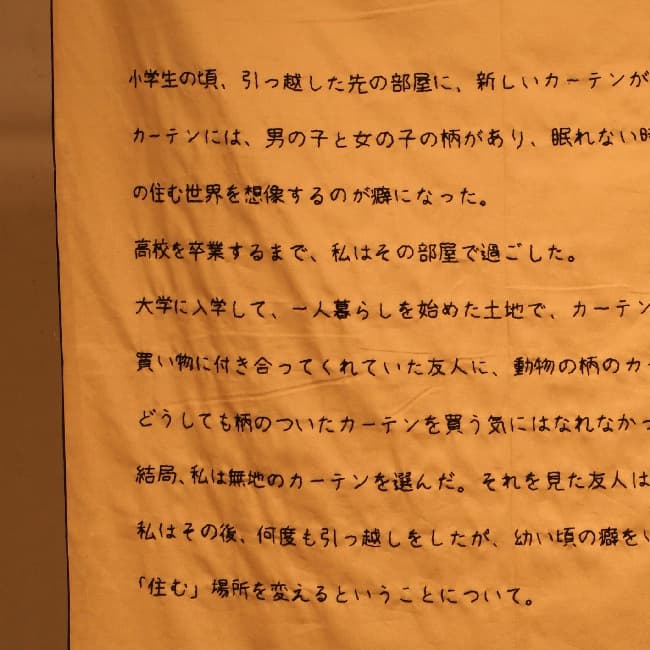 小学生の頃、引っ越した先の部屋に、新しいカーテンが
カーテンには、男の子と女の子の柄があり、眠れない時
の住む世界を想像するのが癖になった。
高校を卒業するまで、私はその部屋で過ごした。
大学に入学して、一人暮らしを始めた土地で、カーテン
買い物に付き合ってくれていた友人に、動物の柄のカー
どうしても柄のついたカーテンを買う気にはなれなかっ
結局、私は無地のカーテンを選んだ。それを見た友人は
私はその後、何度も引っ越しをしたが、幼い頃の癖をい
「住む」場所を変えるということについて。